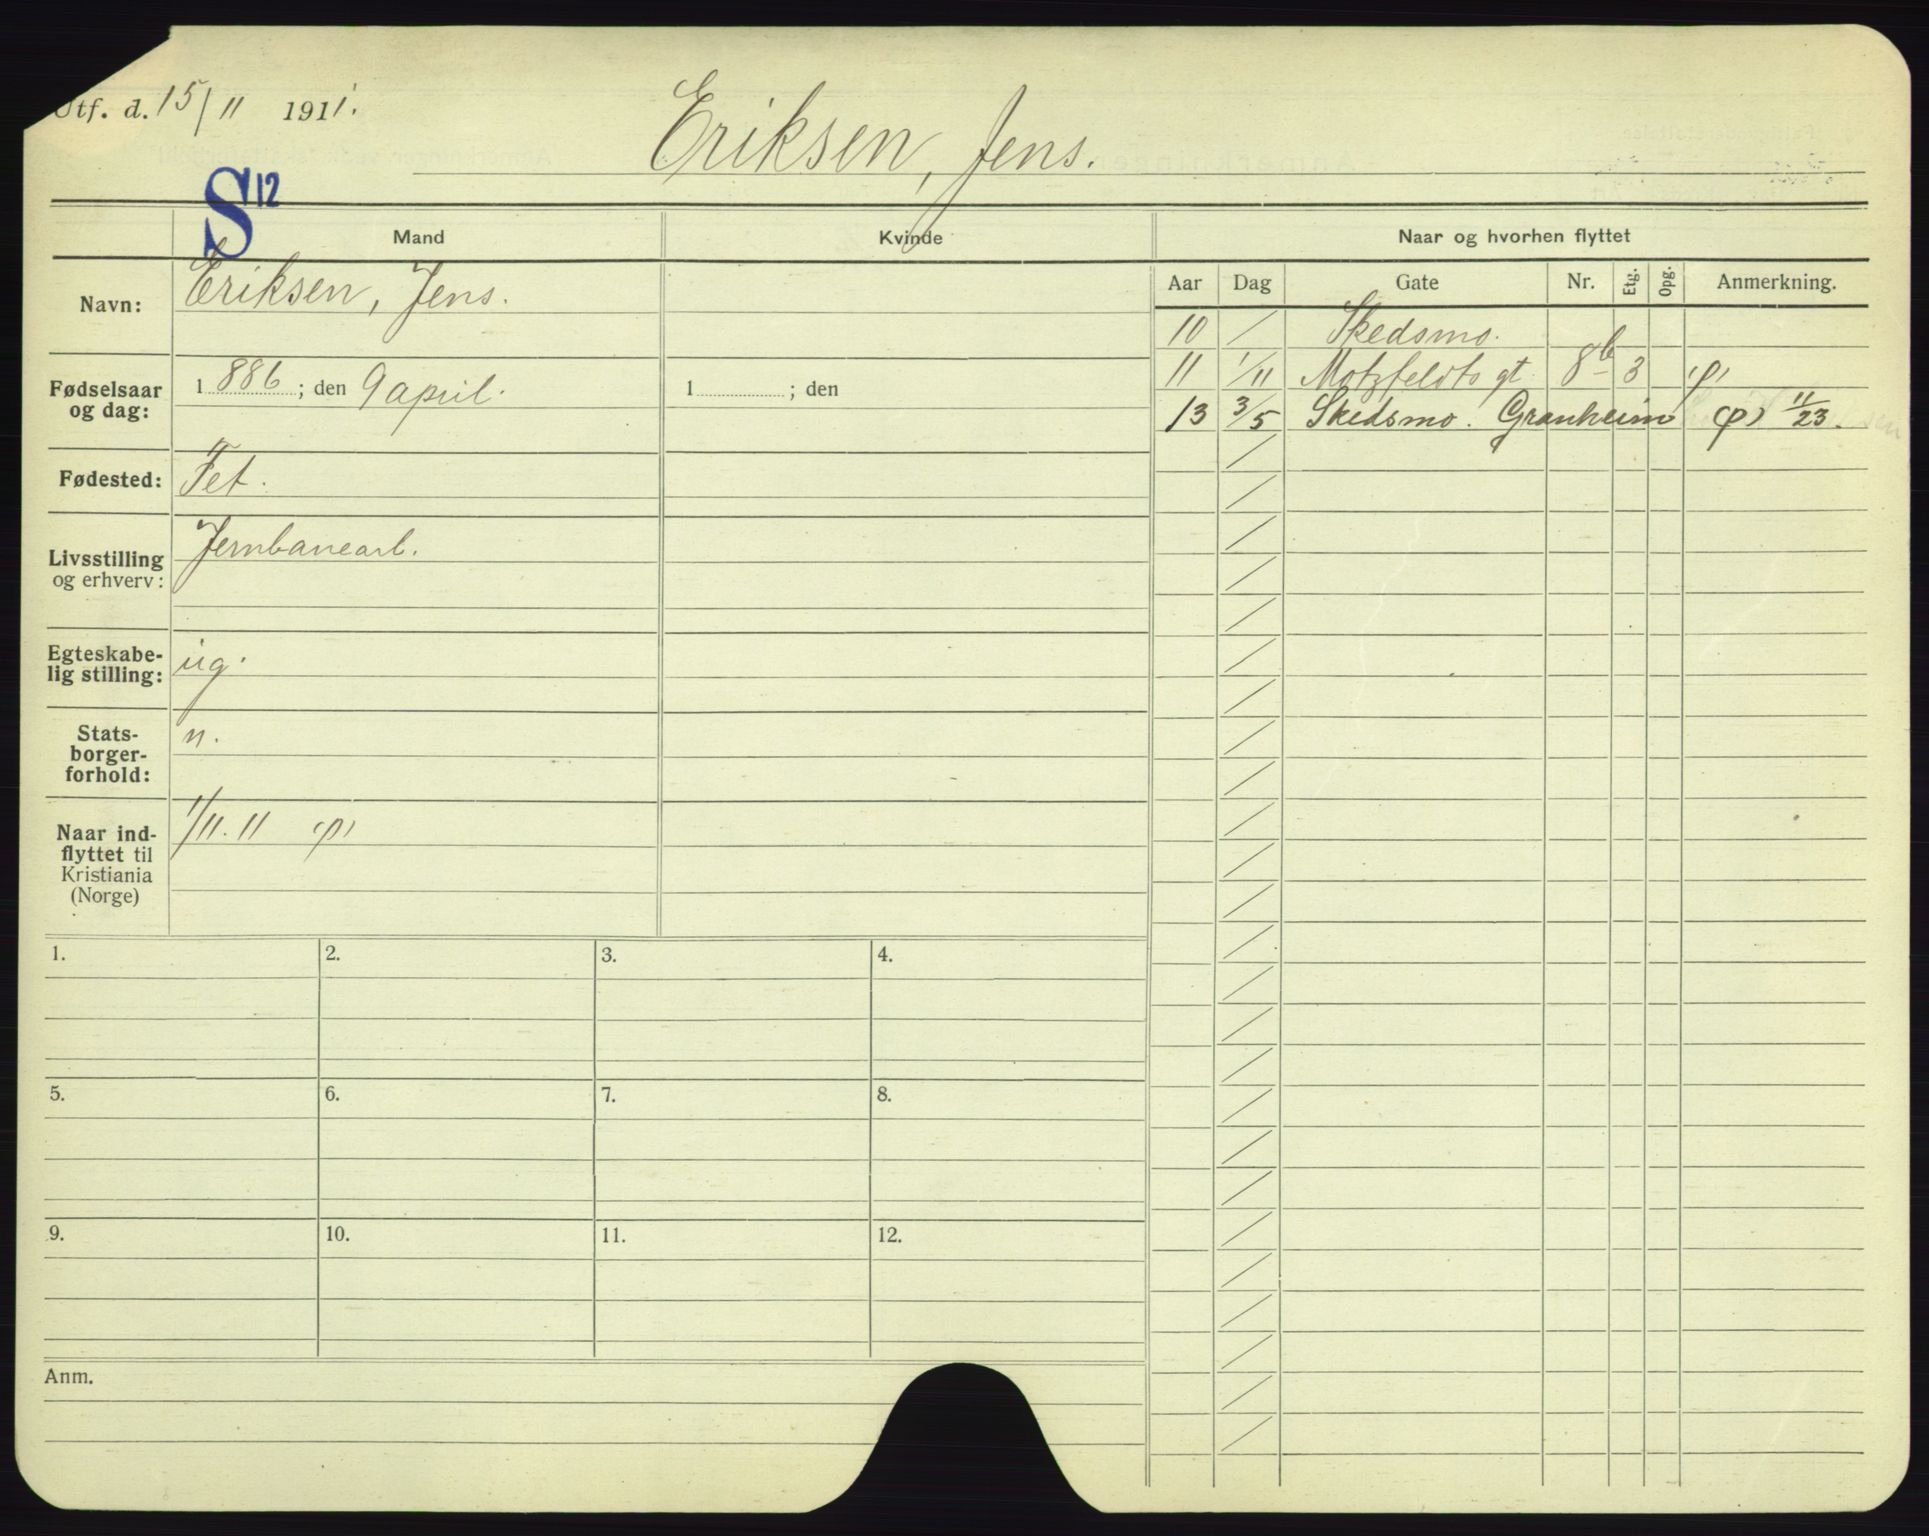 Utf. d. 15/11 1911.
Eriksen, Jens.
S 12
Mand
Kvinde
Naar og hvorhen flyttet
Navn:
Eriksen, Jens.
Fødselsaar
og dag:
1886; den 9 april.
1 ; den
Fødested:
Fet.
Livsstilling
og erhverv:
Jernbanearb.
Egteskabe-
lig stilling:
ug.
Stats-
borger-
forhold:
n.
Naar ind-
flyttet til
Kristiania
(Norge)
1/11. 11 (p)
Aar Dag Gate Nr. Etg. Opg. Anmerkning.
10 / Skedsmo.
11 1/11 Motzfeldts gt 8b 3 (p)
13 3/5 Skedsmo. Granheim (p) 11/23.
1.
2.
3.
4.
5.
6.
7.
8.
9.
10.
11.
12.
Anm.